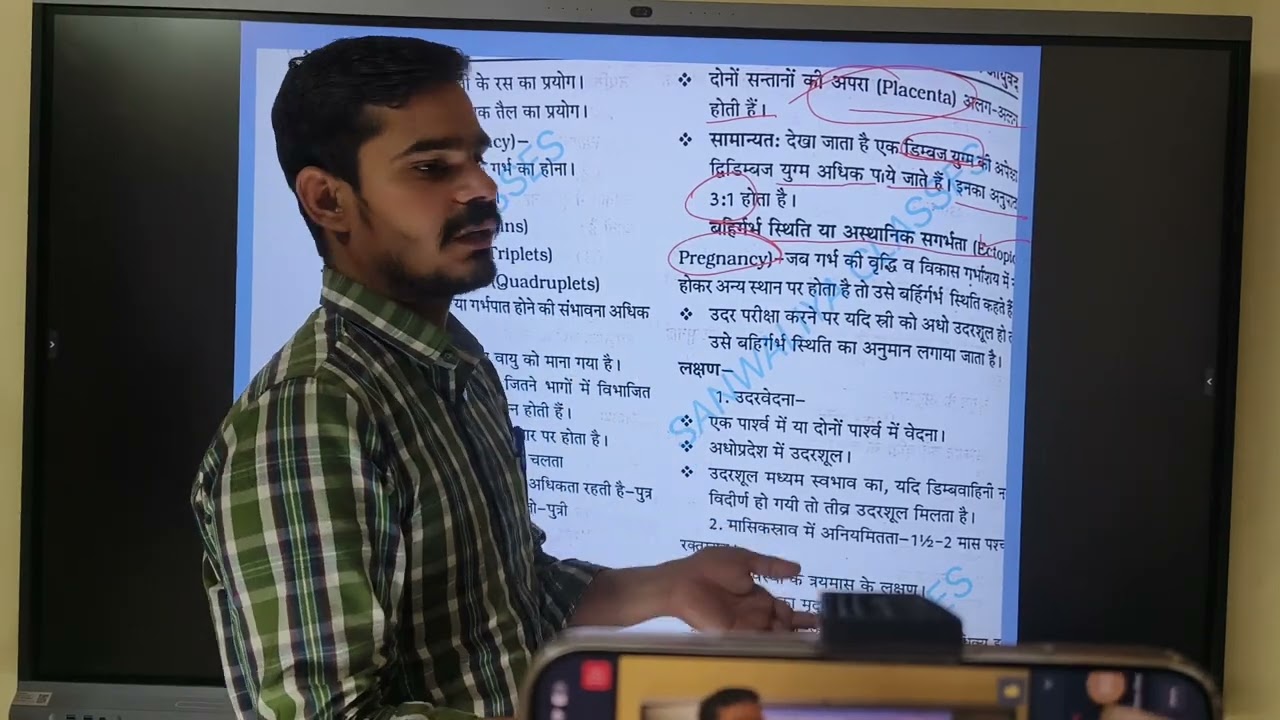 के रस का प्रयोग।
क तैल का प्रयोग।
ncy)–
गर्भ का होना।
ins)
Triplets)
(Quadruplets)
या गर्भपात होने की संभावना अधिक
वायु को माना गया है।
जितने भागों में विभाजित
न होती हैं।
पर होता है।
चलता
अधिकता रहती है–पुत्र
पुत्री
❖ दोनों सन्तानों की अपरा (Placenta) अलग-अलग
होती हैं।
❖ सामान्यतः देखा जाता है एक डिम्बज युग्म की
द्विडिम्बज युग्म अधिक पाये जाते हैं। इनका
3:1 होता है।
बहिर्गर्भ स्थिति या अस्थानिक सगर्भता (Ectopic
Pregnancy)–जब गर्भ की वृद्धि व विकास गर्भाशय में
होकर अन्य स्थान पर होता है तो उसे बर्हिगर्भ स्थिति कहते हैं
❖ उदर परीक्षा करने पर यदि स्त्री को अधो उदरशूल हो
उसे बहिर्गर्भ स्थिति का अनुमान लगाया जाता है।
लक्षण–
1. उदरवेदना–
❖ एक पार्श्व में या दोनों पार्श्व में वेदना।
❖ अधोप्रदेश में उदरशूल।
❖ उदरशूल मध्यम स्वभाव का, यदि डिम्बवाहिनी न
विदीर्ण हो गयी तो तीव्र उदरशूल मिलता है।
2. मासिकस्त्राव में अनियमितता–1½-2 मास पश्च
के त्रयमास के लक्षण।
SANWALIYA CLASSES